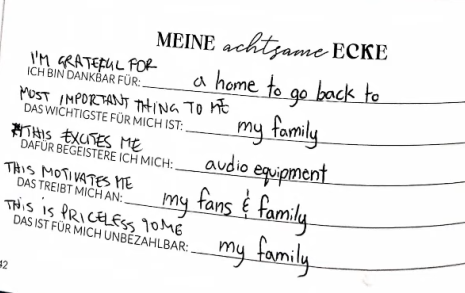 MEINE achtsame ECKE
I'M GRATEFUL FOR
ICH BIN DANKBAR FÜR: a home to go back to
MOST IMPORTANT THING TO ME
DAS WICHTIGSTE FÜR MICH IST: my family
THIS EXCITES ME
DAFÜR BEGEISTERE ICH MICH: audio equipment
THIS MOTIVATES ME
DAS TREIBT MICH AN: my fans & family
THIS IS PRICELESS TO ME
DAS IST FÜR MICH UNBEZAHLBAR: my family
42